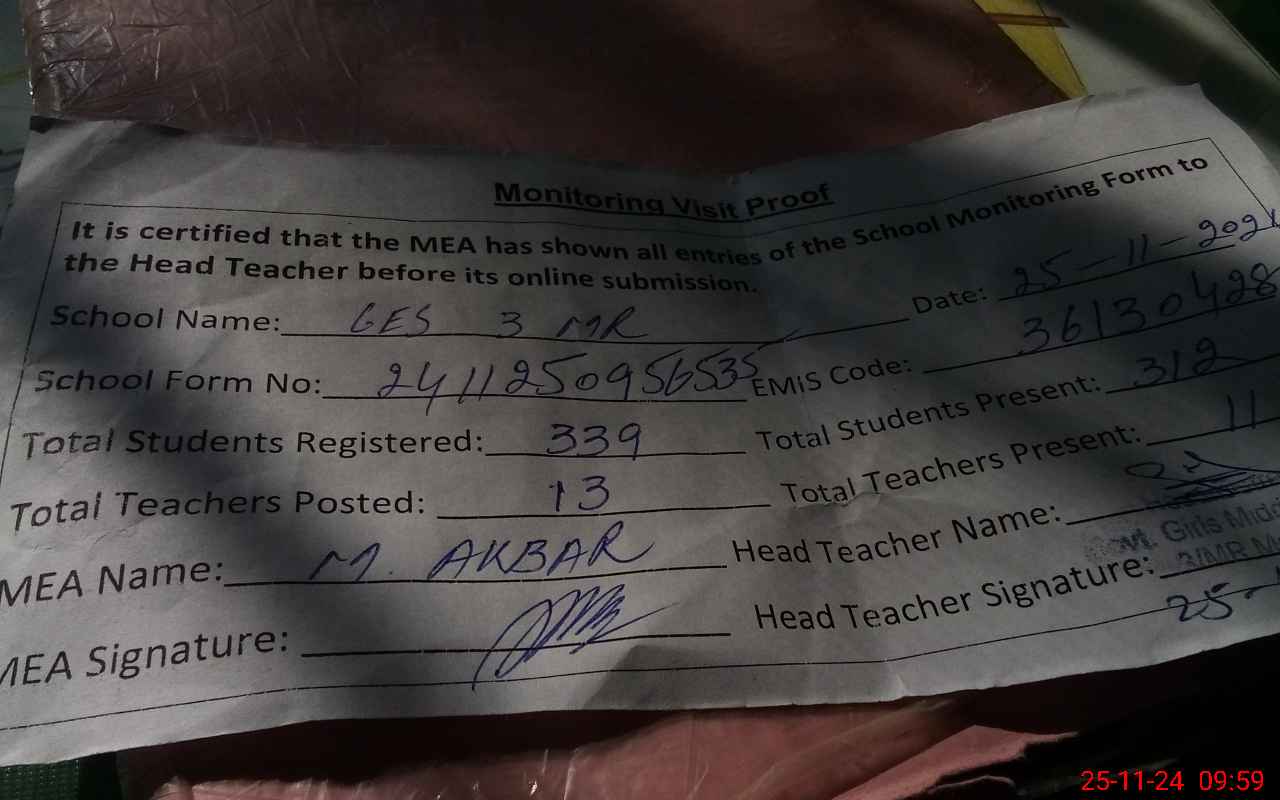 Monitoring Visit Proof
It is certified that the MEA has shown all entries of the School Monitoring Form to
the Head Teacher before its online submission.
School Name: GES 3 MR Date: 25-11-2024
School Form No: 2411250956535 EMIS Code: 36130428
Total Students Registered: 339 Total Students Present: 312
Total Teachers Posted: 13 Total Teachers Present: 11
MEA Name: M. AKBAR Head Teacher Name:
Govt. Girls
3/MR
MEA Signature: Head Teacher Signature:
25-
25-11-24 09:59